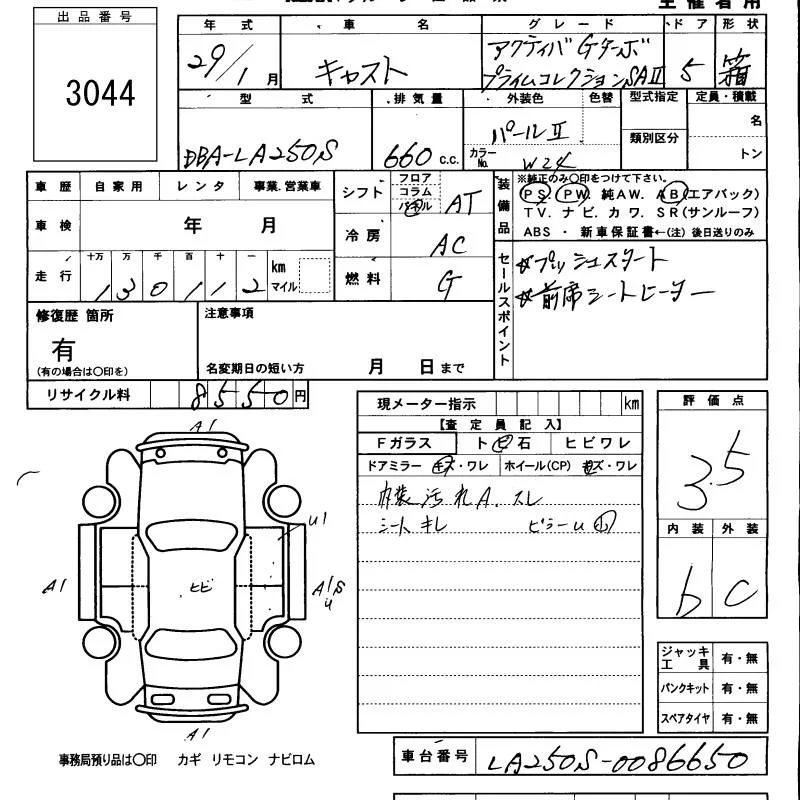 出品番号
3044
年式 車名 グレード ドア 形状
29/1月 キャスト アクティバGターボ
プライムコレクションSAⅡ 5 箱
型式 排気量 外装色 色替 型式指定 定員・積載
DBA-LA250S 660 c.c. パールⅡ 名
カラーNo. W24 類別区分 トン
車歴 自家用 レンタ 事業.営業車
車検 年 月
走行 十万 万 千 百 十 一
1 3 0 1 1 2 km マイル
シフト フロア コラム パネル AT
冷房 AC
燃料 G
装備品
※純正のみ○印をつけて下さい。
PS. PW. 純AW. AB(エアバック)
TV. ナビ. カワ. SR(サンルーフ)
ABS ・ 新車保証書←(注) 後日送りのみ
セールスポイント
☆プッシュスタート
☆前席シートヒーター
修復歴 箇所
有
(有の場合は○印を)
注意事項
名変期日の短い方 月 日まで
リサイクル料 8550円
現メーター指示 km
【査定員記入】
Fガラス トビ石 ヒビワレ
ドアミラー キズ・ワレ ホイール(CP) キズ・ワレ
内装汚れA.スレ
シートキレ ピラーU小
評価点
3.5
内装 外装
b C
A1
U1
A1
ヒビ
A1S
U
A1
ジャッキ工具 有・無
パンクキット 有・無
スペアタイヤ 有・無
事務局預り品は○印 カギ リモコン ナビロム
車台番号 LA250S-0086650